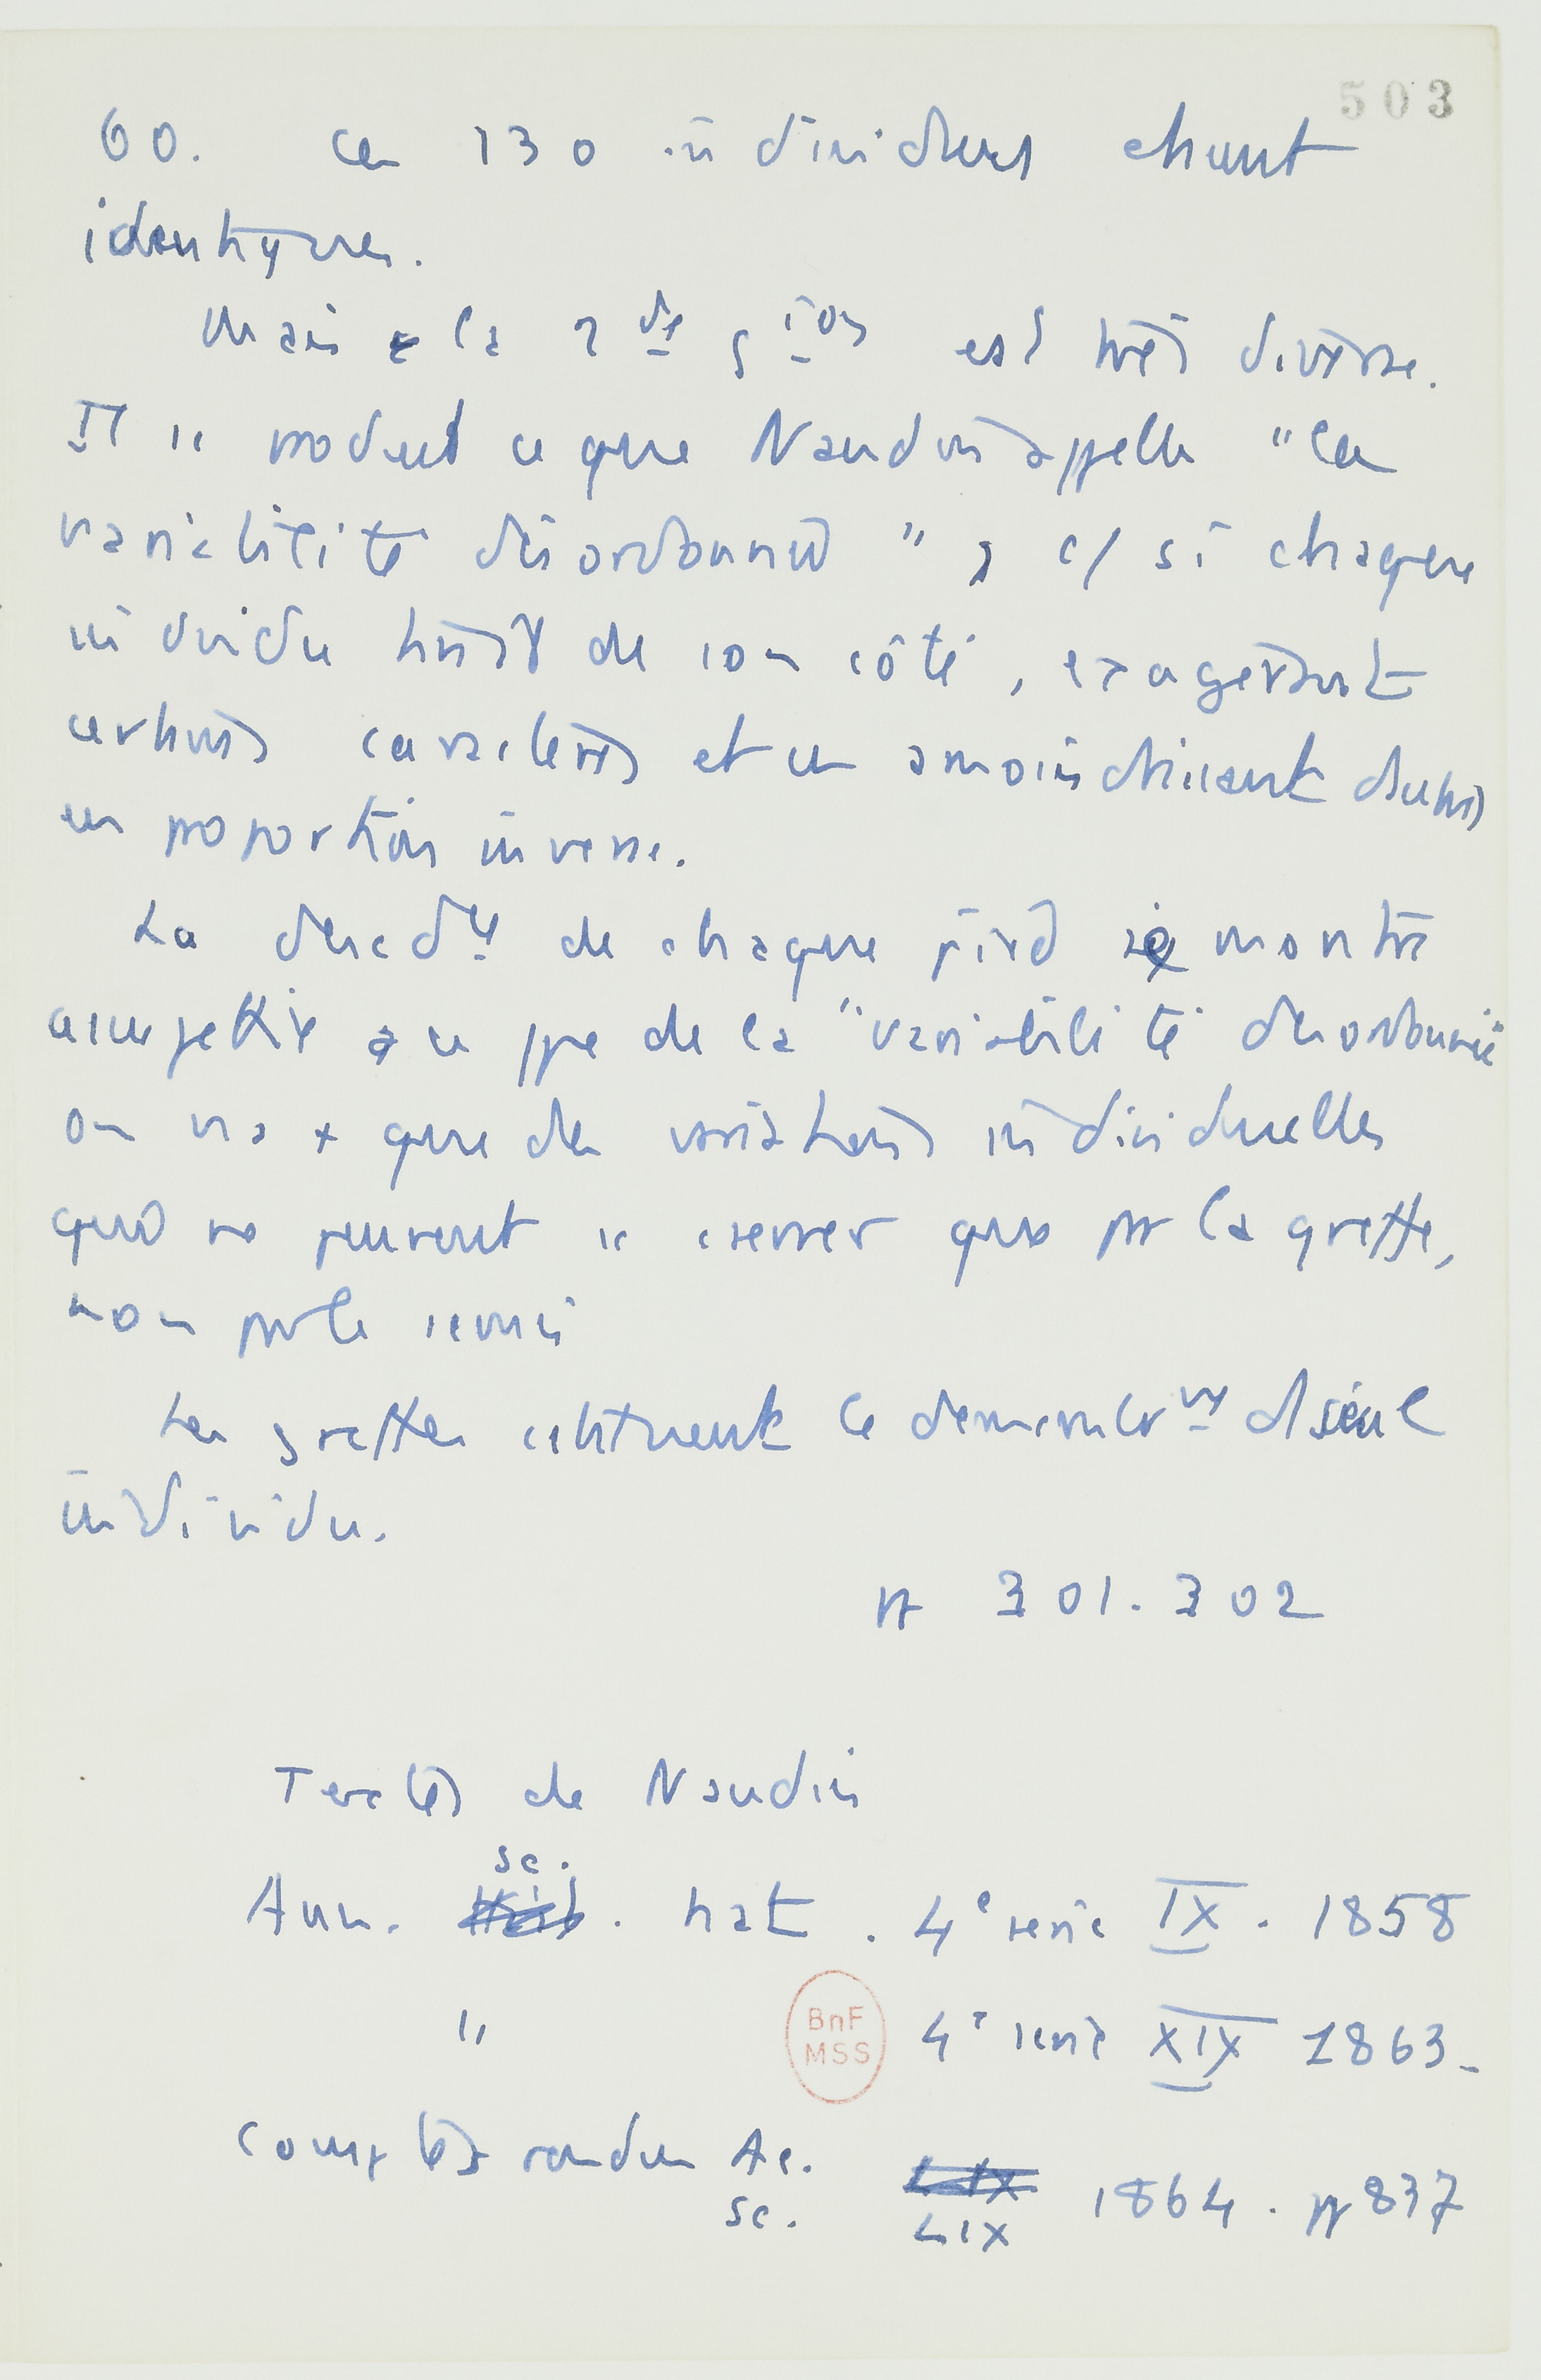 503
60. Ces 130 individus étaient
identiques.
Mais la 2de gion est très diverse.
Il se produit ce que Naudin appelle "la
variabilité désordonnée", c/ si chaque
individu tirait de son côté, exagérant
certains caractères et en amoindrissant d'autres
en proportion inverse.
La descdce de chaque pied se montre
assujettie à ce ppe de la "variabilité désordonnée"
on n'a + que des variations individuelles
qui ne peuvent se conserver que par la greffe,
non par le semis
Les greffes constituent le d'un seul
individu.
pp 301.302
Textes de Naudin
Ann. sc. nat. 4e série IX. 1858
" 4e série XIX 1863.
BnF
MSS
Comptes rendus Ac.
sc. LIX 1864. pp 837